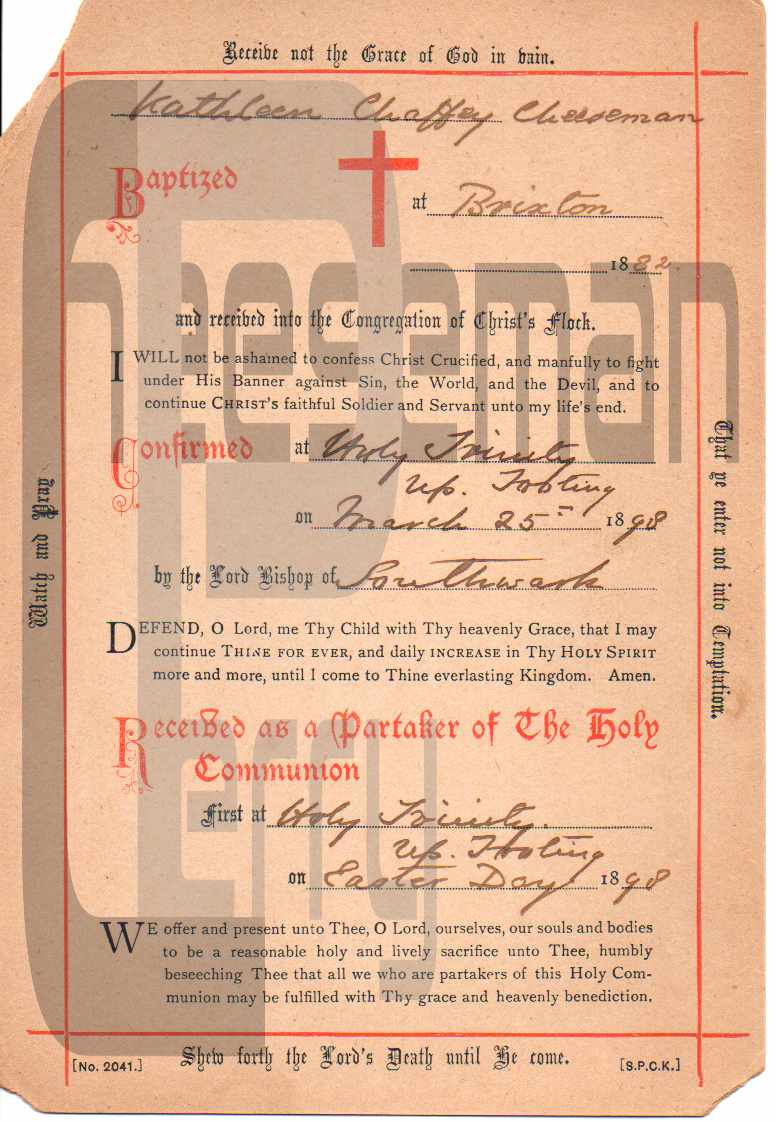 Receive not the Grace of God in vain.
Kathleen Chaffey Cheeseman
Baptized
at Brixton
1882
and received into the Congregation of Christ's Flock.
I WILL not be ashamed to confess Christ Crucified, and manfully to fight
under His Banner against Sin, the World, and the Devil, and to
continue CHRIST'S faithful Soldier and Servant unto my life's end.
Confirmed at Holy Trinity
Up. Tooting
on March 25th 1898
by the Lord Bishop of Southwark
DEFEND, O Lord, me Thy Child with Thy heavenly Grace, that I may
continue THINE FOR EVER, and daily INCREASE in Thy HOLY SPIRIT
more and more, until I come to Thine everlasting Kingdom. Amen.
Received as a Partaker of The Holy
Communion
First at Holy Trinity.
Up. Tooting
on Easter Day 1898
WE offer and present unto Thee, O Lord, ourselves, our souls and bodies
to be a reasonable holy and lively sacrifice unto Thee, humbly
beseeching Thee that all we who are partakers of this Holy Com-
munion may be fulfilled with Thy grace and heavenly benediction.
[No. 2041.]
Shew forth the Lord's Death until He come.
[S.P.C.K.]
Watch and Pray
That ye enter not into Temptation.
Cheeseman
Perry